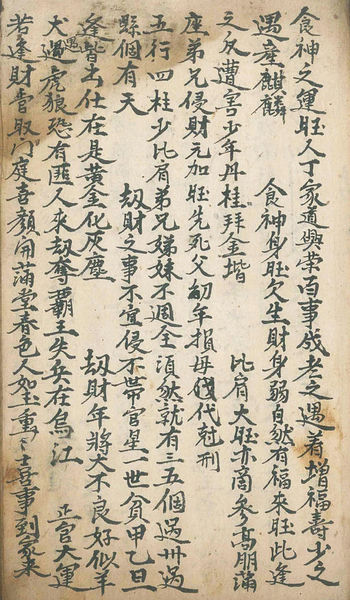 食神之運旺人丁家道興榮百事成老之遇着增福壽少之
遇産麒麟　食神身旺欠生財身弱自然有福來旺此逢
之反遭害少年丹桂拜金堦　比肩大旺亦商參高朋滿
座弟兄侵財元加旺先死父初年損毋後代尅刑
五行四柱少比肩弟兄娣妹不週全須然就有三五個過卅過
縣個有天　刼財之事不宜侵不帶官星一世貧甲乙旦
逢皆出仕在是黄金化灰塵　刼財年將大不良好似羊
犬遇虎狼恐有匪人來刼奪覇王失兵在烏江　正官大運
若逢財喜取门庭喜顔開滿堂春色人如玉重〻喜事到家来